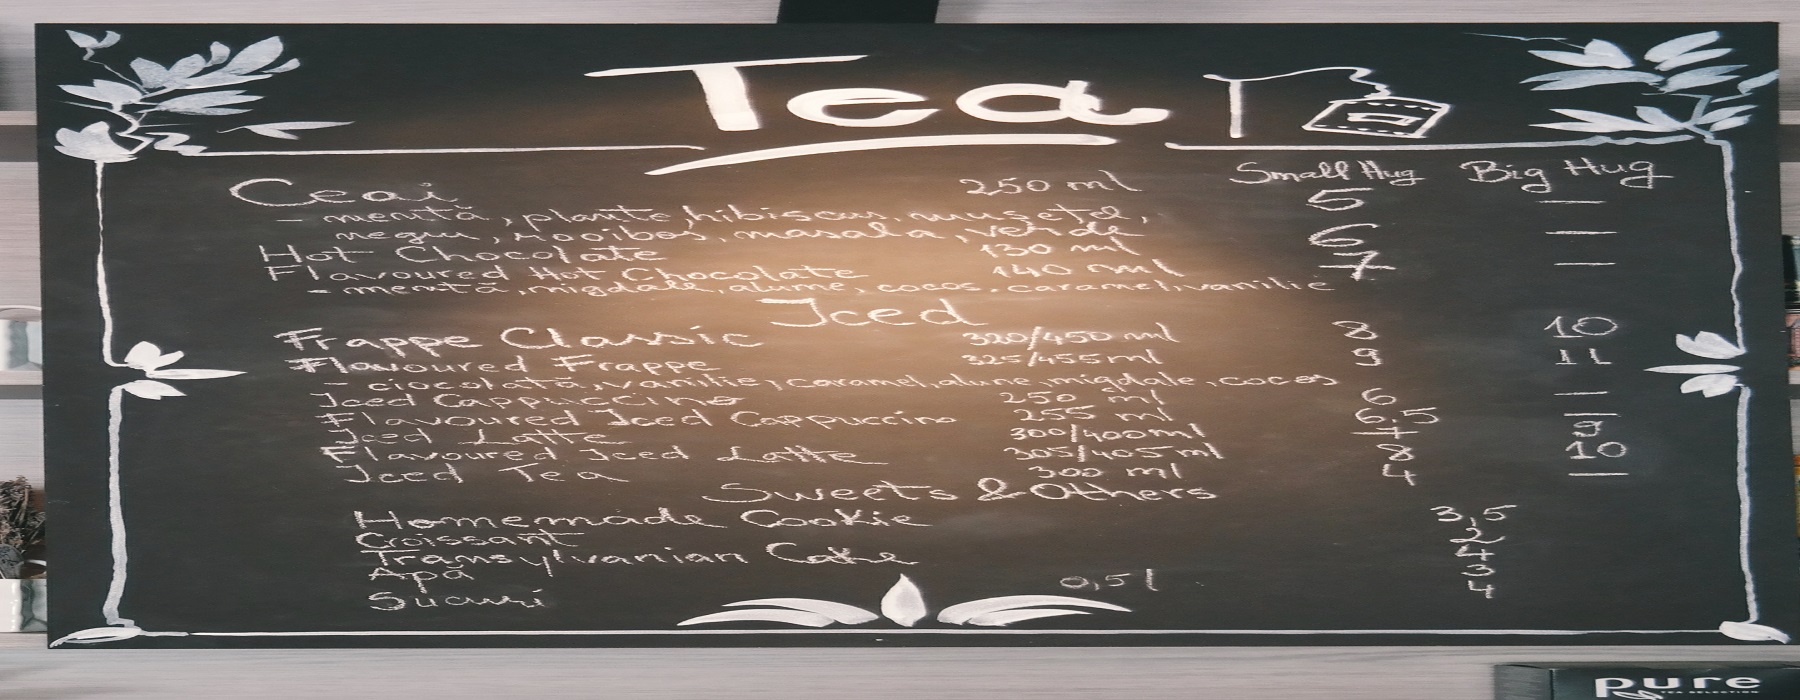 Tea
Small Hug Big Hug
Ceai 250 ml 5 —
- mentă, plante, hibiscus, mușețel,
negru, rooibos, masala, verde
Hot Chocolate 130 ml 6 —
Flavoured Hot Chocolate 140 ml 7 —
- mentă, migdale, alune, cocos, caramel, vanilie
Iced
Frappe Classic 320/450 ml 8 10
Flavoured Frappe 325/455 ml 9 11
- ciocolată, vanilie, caramel, alune, migdale, cocos
Iced Cappuccino 250 ml 6 —
Flavoured Iced Cappuccino 255 ml 6,5 —
Iced Latte 300/400 ml 7 9
Flavoured Iced Latte 305/405 ml 8 10
Iced Tea 300 ml 4 —
Sweets & Others
Homemade Cookie 3,5
Croissant 2
Transylvanian Cake 4
Apă 0,5 l 3
Sucuri 4
pure
TEA SELECTION